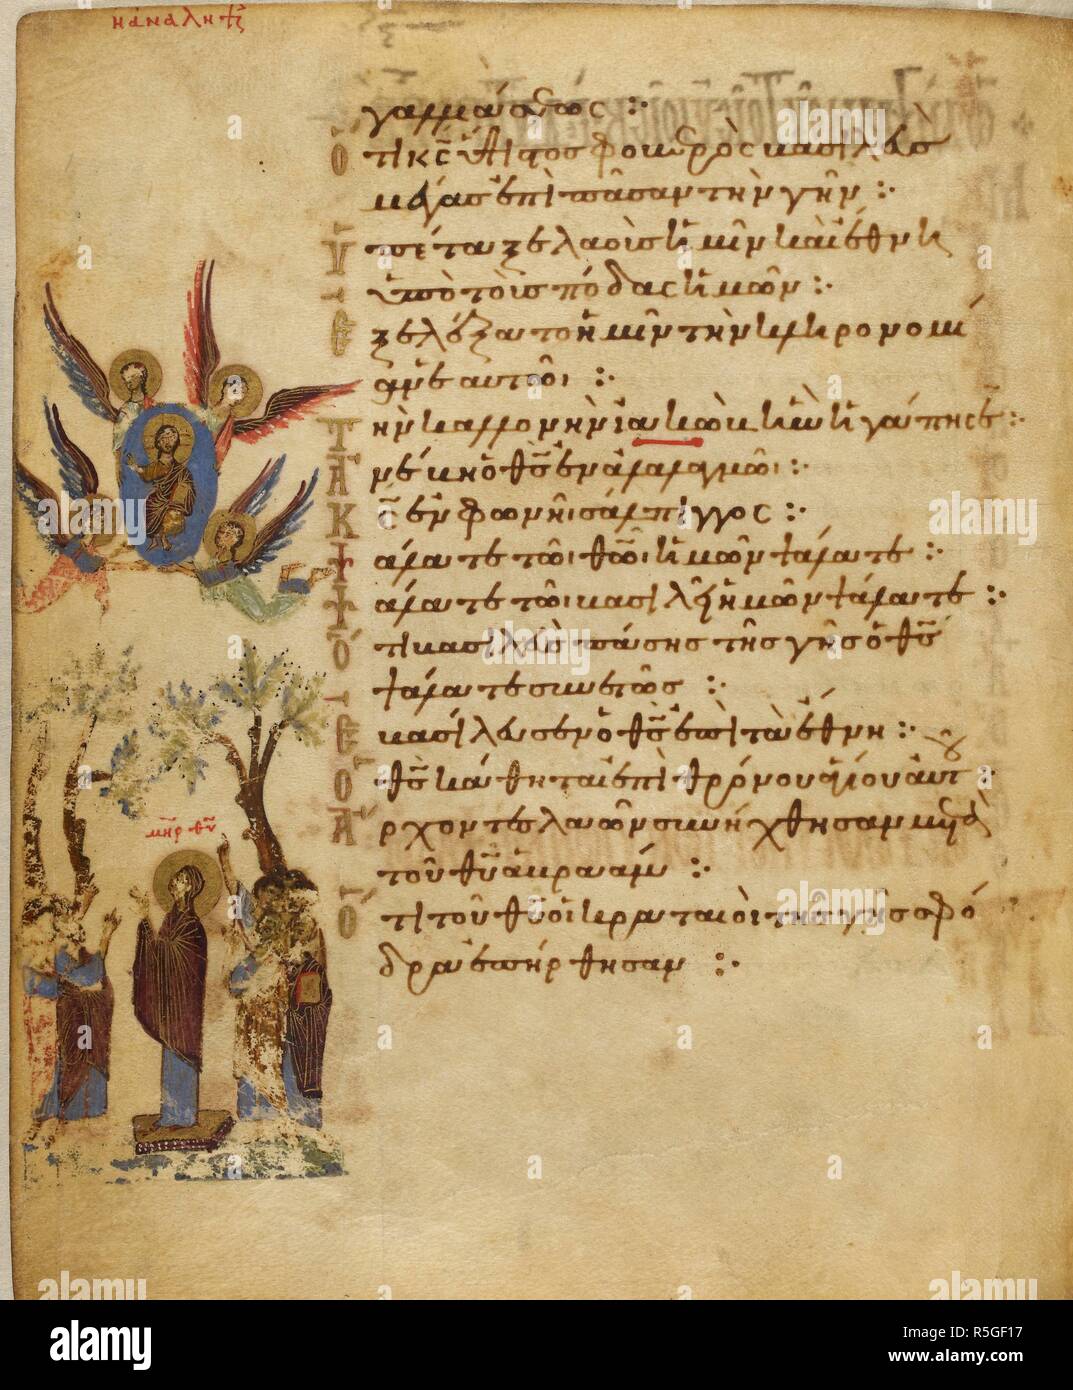 ἡ ἀνάληψις
γαλλιάσεως :·
Ὅτι κ̅ς̅ ὕψιστος φοβερὸς βασιλεὺς
μέγας ἐπὶ πᾶσαν τὴν γῆν :·
Ὑπέταξε λαοὺς ἡμῖν καὶ ἔθνη
ὑπὸ τοὺς πόδας ἡμῶν :·
Ἐξελέξατο ἡμῖν τὴν κληρονομί
αν ἑαυτῶι :·
Τὴν καλλονὴν ἰακὼβ ἣν ἠγάπησε :·
Ἀνέβη ὁ θ̅ς̅ ἐν ἀλαλαγμῶι :·
Κ̅ς̅ ἐν φωνῆι σάλπιγγος :·
Ψάλατε τῶι θ̅ω̅ι ἡμῶν ψάλατε :·
Ψάλατε τῶι βασιλεῖ ἡμῶν ψάλατε :·
Ὅτι βασιλεὺς πάσης τῆς γῆς ὁ θ̅ς̅
ψάλατε συνετῶς :·
Ἐβασίλευσεν ὁ θ̅ς̅ ἐπὶ τὰ ἔθνη :·
Ὁ θ̅ς̅ κάθηται ἐπὶ θρόνου ἁγίου αὐτοῦ :·
μ̅η̅ρ̅ θ̅υ̅
Ἄρχοντες λαῶν συνήχθησαν μετὰ
τοῦ θ̅υ̅ ἀβραάμ :·
Ὅτι τοῦ θ̅υ̅ οἱ κραταιοὶ τῆς γῆς σφό
δρα ἐπήρθησαν :·
alamy
Image ID: R5GF17
www.alamy.com